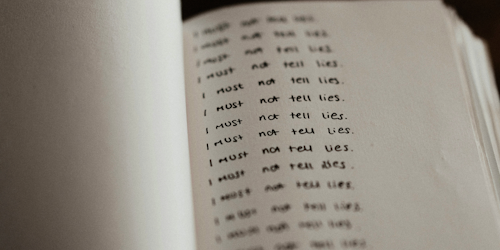 I must not tell lies.
I must not tell lies.
I must not tell lies.
I must not tell lies.
I must not tell lies.
I must not tell lies.
I must not tell lies.
I must not tell lies.
I must not tell lies.
I must not tell lies.
I must not tell lies.
I must not tell lies.
must not tell lies
not tell lies